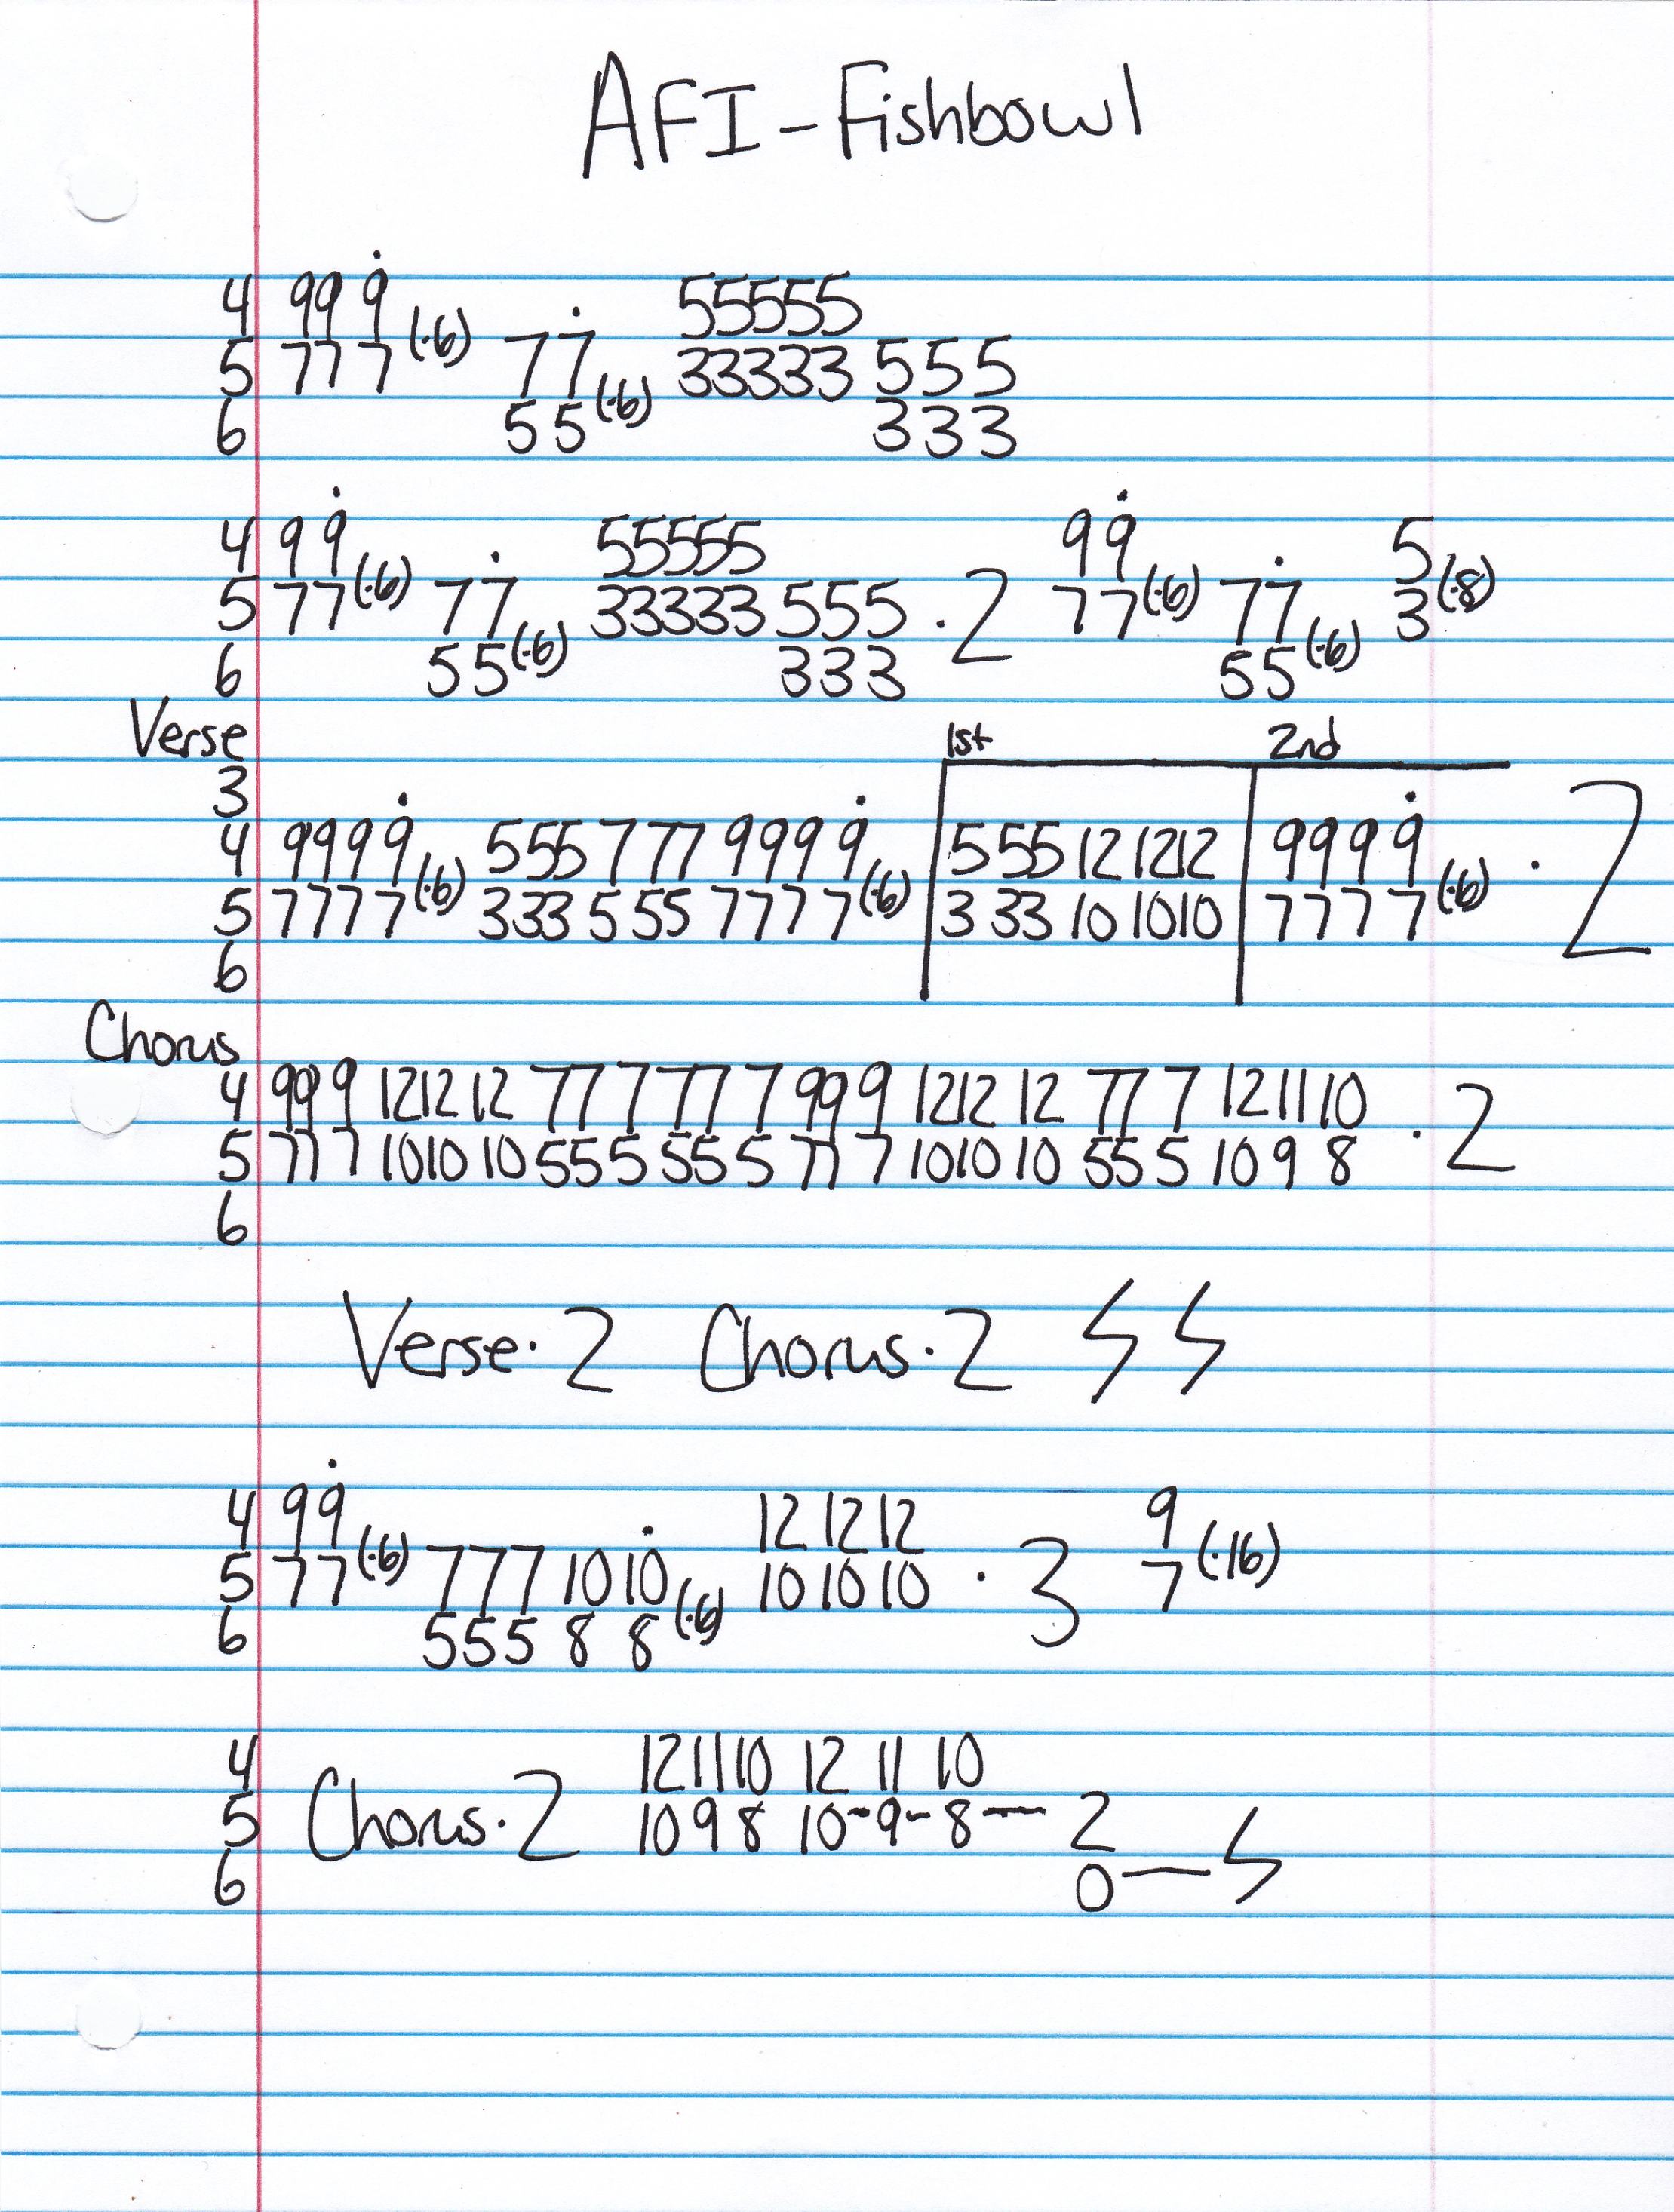 AFI - Fishbowl
4 99 9
5 77 7 (·6) 77 33333 555
6 55 (·6) 333
55555
4 99 55555 99 5
5 77 (·6) 77 33333 555 · 2 77 (·6) 77 3 (·8)
6 55 (·6) 333 55 (·6)
Verse 1st 2nd
3
4 9999 555 777 9999 555 12 1212 9999
5 7777 (·6) 333 555 7777 (·6) 333 10 1010 7777 (·6) · 2
6
Chorus
4 99 9 1212 12 77 7 77 7 99 9 1212 12 77 7 12 11 10
5 77 7 1010 10 55 5 55 5 77 7 1010 10 55 5 10 9 8 · 2
6
Verse · 2 Chorus · 2
4 99 12 12 12 9
5 77 (·6) 777 10 10 10 10 10 · 3 7 (·16)
6 555 8 8 (·6)
4 12 11 10 12 11 10
5 Chorus · 2 10 9 8 10-9-8— 2
6 0—